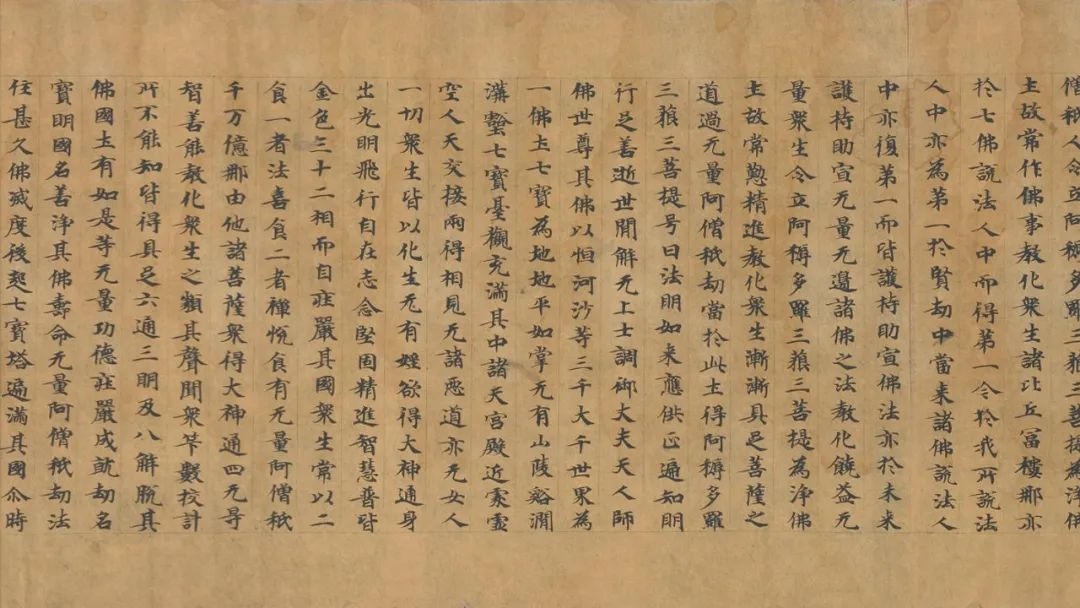 僧祇人令立阿耨多羅三藐三菩提為淨佛
土故常作佛事教化衆生諸比丘富樓那亦
於七佛說法人中而得第一今於我所說法
人中亦為第一於賢劫中當来諸佛說法人
中亦復第一而皆護持助宣佛法亦於未来
護持助宣无量无邊諸佛之法教化饒益无
量衆生令立阿耨多羅三藐三菩提為淨佛
土故常懃精進教化衆生漸漸具足菩薩之
道過无量阿僧祇劫當於此土得阿耨多羅
三藐三菩提号曰法明如来應供正遍知明
行足善逝世間解无上士調御丈夫天人師
佛世尊其佛以恒河沙等三千大千世界為
一佛土七寶為地地平如掌无有山陵谿澗
溝壑七寶臺觀充滿其中諸天宮殿近處虛
空人天交接兩得相見无諸惡道亦无女人
一切衆生皆以化生无有婬欲得大神通身
出光明飛行自在志念堅固精進智慧普皆
金色三十二相而自莊嚴其國衆生常以二
食一者法喜食二者禪悅食有无量阿僧祇
千万億那由他諸菩薩衆得大神通四无㝵
智善能教化衆生之類其聲聞衆筭數挍計
所不能知皆得具足六通三明及八解脫其
佛國土有如是等无量功德莊嚴成就劫名
寶明國名善淨其佛壽命无量阿僧祇劫法
住甚久佛滅度後起七寶塔遍滿其國尒時